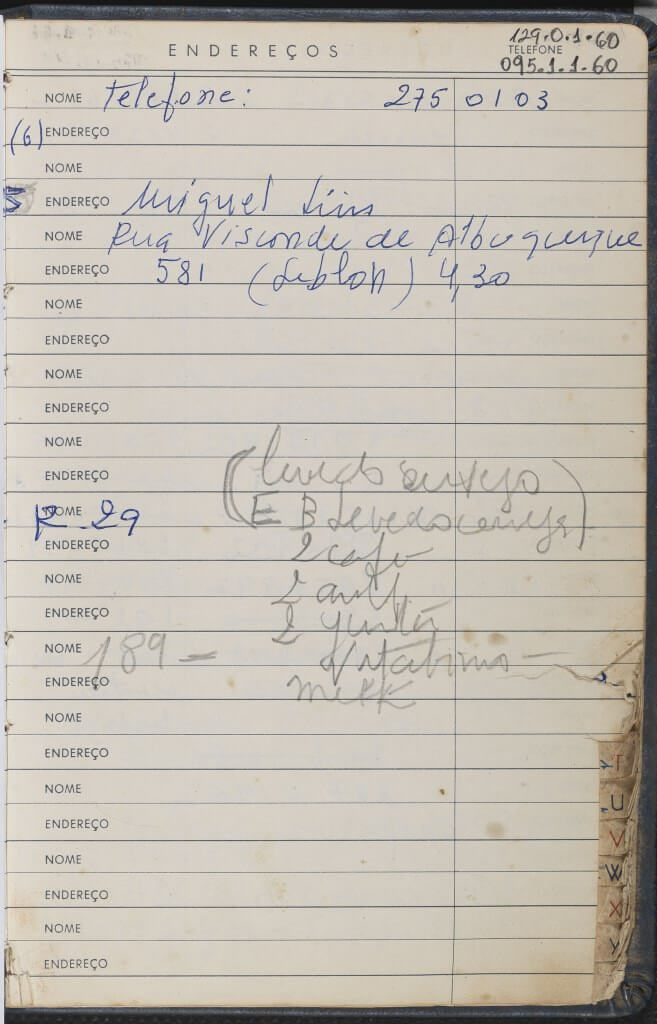 129.0.1.60
ENDEREÇOS TELEFONE
095.1.1.60
NOME Telefone: 275 0103
(6) ENDEREÇO
NOME
ENDEREÇO Miguel Lins
NOME Rua Visconde de Albuquerque
ENDEREÇO 581 (Leblon) 4,30
NOME
ENDEREÇO
NOME
ENDEREÇO
NOME
ENDEREÇO (
NOME R. 29 E B Levedo cerveja)
ENDEREÇO 2 café
NOME 2
ENDEREÇO 2
NOME 189 =
ENDEREÇO
NOME
ENDEREÇO
NOME
ENDEREÇO
NOME
ENDEREÇO
NOME
ENDEREÇO
T
U
V
W
X
Y